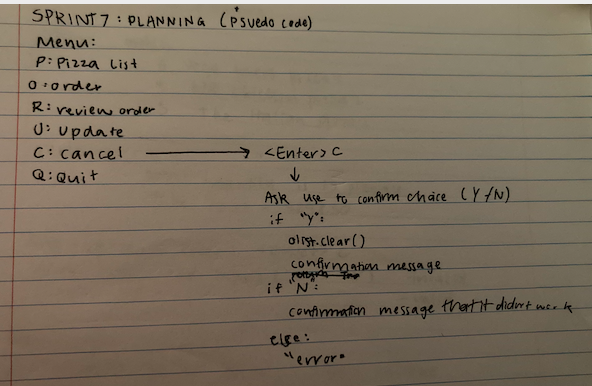 SPRINT 7: PLANNING (Psuedo code)
Menu:
P: Pizza list
O: order
R: review order
U: update
C: cancel → <Enter> C
Q: Quit
↓
Ask use to confirm choice (Y/N)
if "y":
olist.clear()
confirmation message
if "N":
confirmation message that it didn't work
else:
"error"